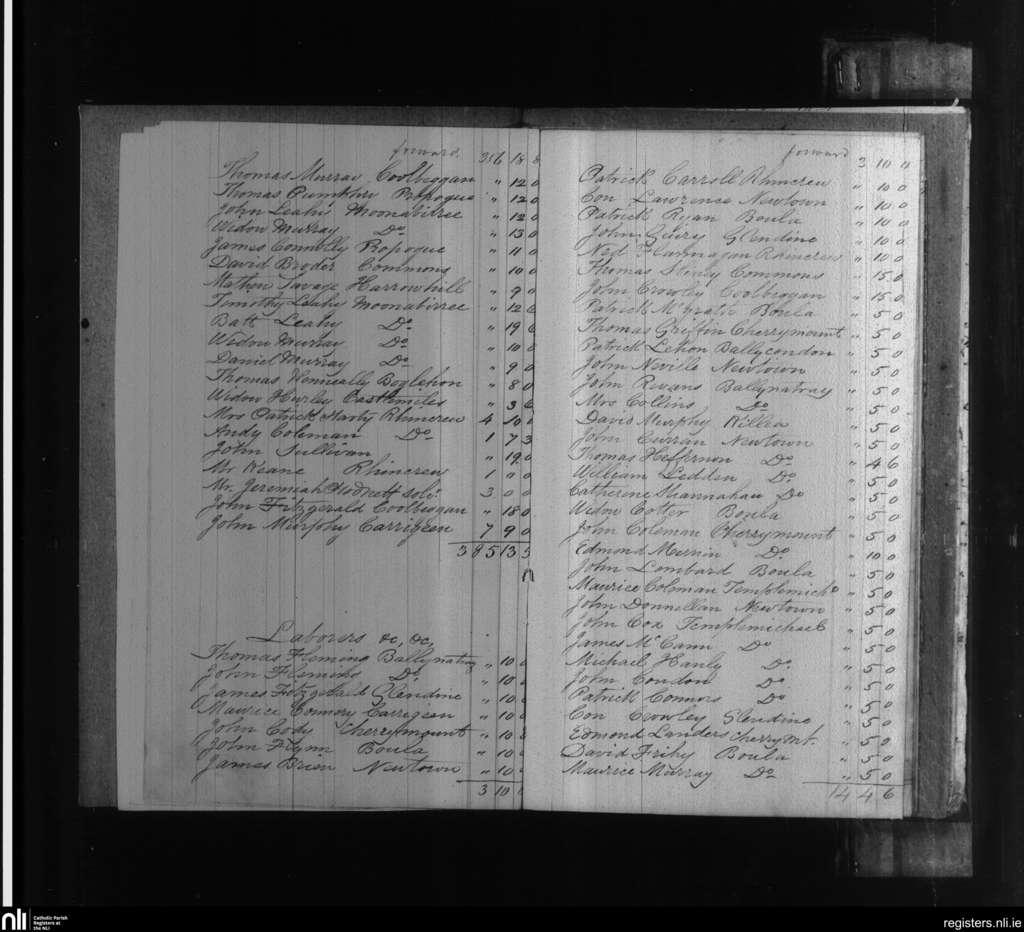 forward 316 18 8
Thomas Murray Coolbeggan " 12 0
Thomas Propogue " 12 0
John Leahi Moonabitree " 12 0
Widow Murray Do " 13 0
James Connolly Propogue " 11 0
David Broder Commons " 10 0
Mathew Savage Harrowhill " 9 0
Timothy Leahi Moonabirree " 12 6
Batt Leahy Do " 19 6
Widow Murray Do " 10 0
Daniel Murray Do " 9 0
Thomas Henneally Boglehon " 8 0
Widow Hurley Castlemiles " 3 6
Mrs Patrick Marty Rhincrew 4 10 0
Andy Coleman Do 1 7 3
John Sullivan " 19 0
Mr Keane Rhincrew 1 0 0
Mr. Jeremiah Hodnett Solr. 3 0 0
John Fitzgerald Coolbeggan " 18 0
John Murphy Carrigeen 7 9 0
385 13 5
Laborers &c, &c,
Thomas Fleming Ballynatray " 10 0
John Fleming Do " 10 0
James Fitzgerald Glendine " 10 0
Maurice Connory Carrigeen " 10 0
John Cody Cherrymount " 10 0
John Flynn Boula " 10 0
James Brien Newtown " 10 0
3 10 0
forward 3 10 0
Patrick Carroll Rhincrew " 10 0
Con Lawrense Newtown " 10 0
Patrick Ryan Boula " 10 0
John Geiry Glendine " 10 0
Ned Flannagan Rhincrew " 10 0
Thomas Commons " 15 0
John Crowley Coolbeggan " 15 0
Patrick McGrath Boula " 5 0
Thomas Griffin Cherrymount " 5 0
Patrick Lehon Ballycondon " 5 0
John Neville Newtown " 5 0
John Revans Ballynatray " 5 0
Mrs Collins Do " 5 0
David Murphy Killea " 5 0
John Curran Newtown " 5 0
Thomas Heffernon Do " 4 6
William Leddin Do " 5 0
Catherine Shannahan Do " 5 0
Widow Cotter Boula " 5 0
John Coleman Cherrymount " 5 0
Edmond Murnin Do " 10 0
John Lombard Boula " 5 0
Maurice Colman Templemichl " 5 0
John Donnellan Newtown " 5 0
John Cox Templemichael " 5 0
James McCann Do " 5 0
Michael Hanly Do " 5 0
John Condon Do " 5 0
Patrick Connors Do " 5 0
Con Crowley Glendine " 5 0
Edmond Landers Cherrymt. " 5 0
David Frihy Boula " 5 0
Maurice Murray Do " 5 0
14 4 6
nli
Catholic Parish
Registers at
the NLI
registers.nli.ie